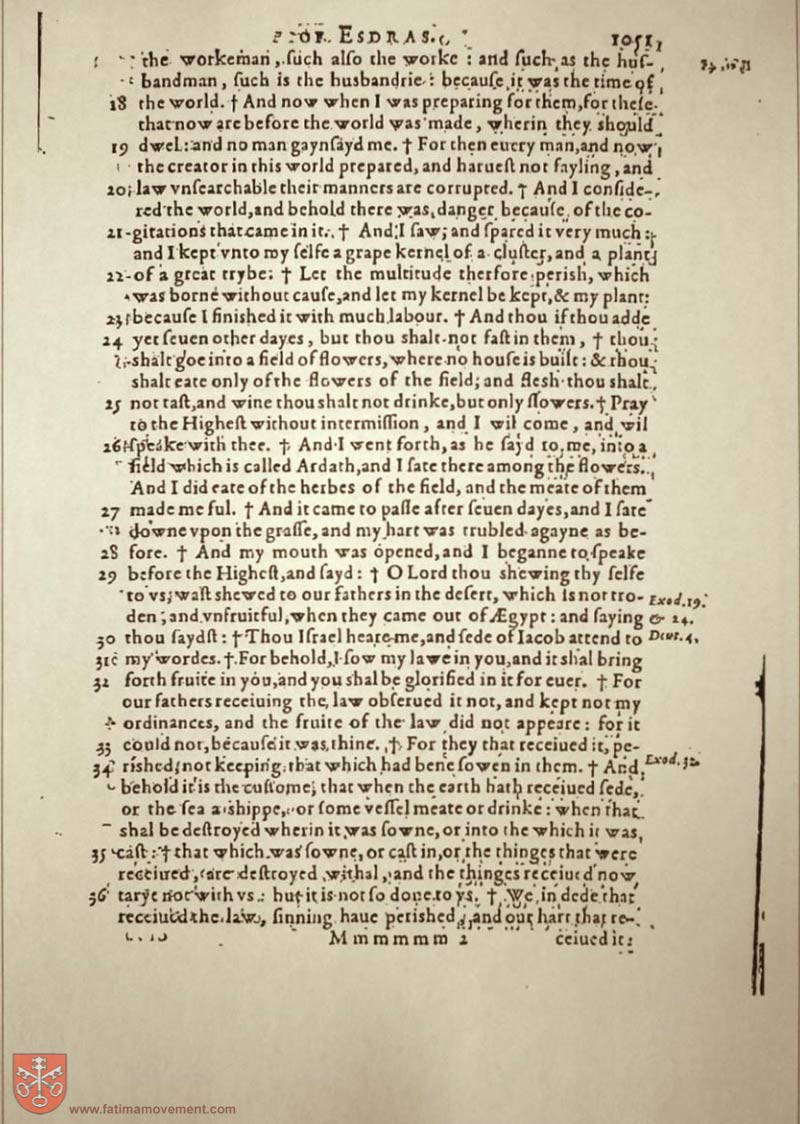 OF ESDRAS. 1051
the workeman, such also the worke : and such as the hus-
bandman, such is the husbandrie : because it was the time of
18 the world. † And now when I was preparing for them, for these
that now are before the world was made, wherin they should
19 dwel : and no man gaynsayd me. † For then euery man, and now
the creator in this world prepared, and haruest not fayling, and
20 law vnsearchable their manners are corrupted. † And I conside-
red the world, and behold there was danger because of the co-
21 gitations that came in it. † And I saw, and spared it very much :
and I kept vnto my selfe a grape kernel of a cluster, and a plant
22 of a great trybe : † Let the multitude therfore perish, which
was borne without cause, and let my kernel be kept, & my plant:
23 because I finished it with much labour. † And thou if thou adde
24 yet seuen other dayes, but thou shalt not fast in them, † thou
shalt goe into a field of flowers, where no house is built : & thou
shalt eate only of the flowers of the field, and flesh thou shalt
25 not tast, and wine thou shalt not drinke, but only flowers. † Pray
to the Highest without intermission, and I wil come, and wil
26 speake with thee. † And I went forth, as he sayd to me, into a
field which is called Ardath, and I sate there among the flowers.
And I did eate of the herbes of the field, and the meate of them
27 made me ful. † And it came to passe after seuen dayes, and I sate
downe vpon the grasse, and my hart was trubled agayne as be-
28 fore. † And my mouth was opened, and I beganne to speake
29 before the Highest, and sayd : † O Lord thou shewing thy selfe
to vs, wast shewed to our fathers in the desert, which is not tro- Exod. 19.
den, and vnfruitful, when they came out of Ægypt : and saying & 24.
30 thou saydst : † Thou Israel heare me, and sede of Iacob attend to Deut. 4.
31 my wordes. † For behold, I sow my lawe in you, and it shal bring
32 forth fruite in you, and you shal be glorified in it for euer. † For
our fathers receiuing the law obserued it not, and kept not my
ordinances, and the fruite of the law did not appeare : for it
33 could not, because it was thine. † For they that receiued it, pe-
34 rished, not keeping that which had bene sowen in them. † And Exod. 32.
behold it is the custome, that when the earth hath receiued sede,
or the sea a shippe, or some vessel meate or drinke : when that
shal be destroyed wherin it was sowne, or into the which it was
35 cast : † that which was sowne, or cast in, or the thinges that were
receiued, are destroyed withal, and the thinges receiued now
36 tarye not with vs : but it is not so done to vs. † We in dede that
receiued the law, sinning haue perished, and our hart that re-
Mmmmmm 2 ceiued it:
www.fatimamovement.com